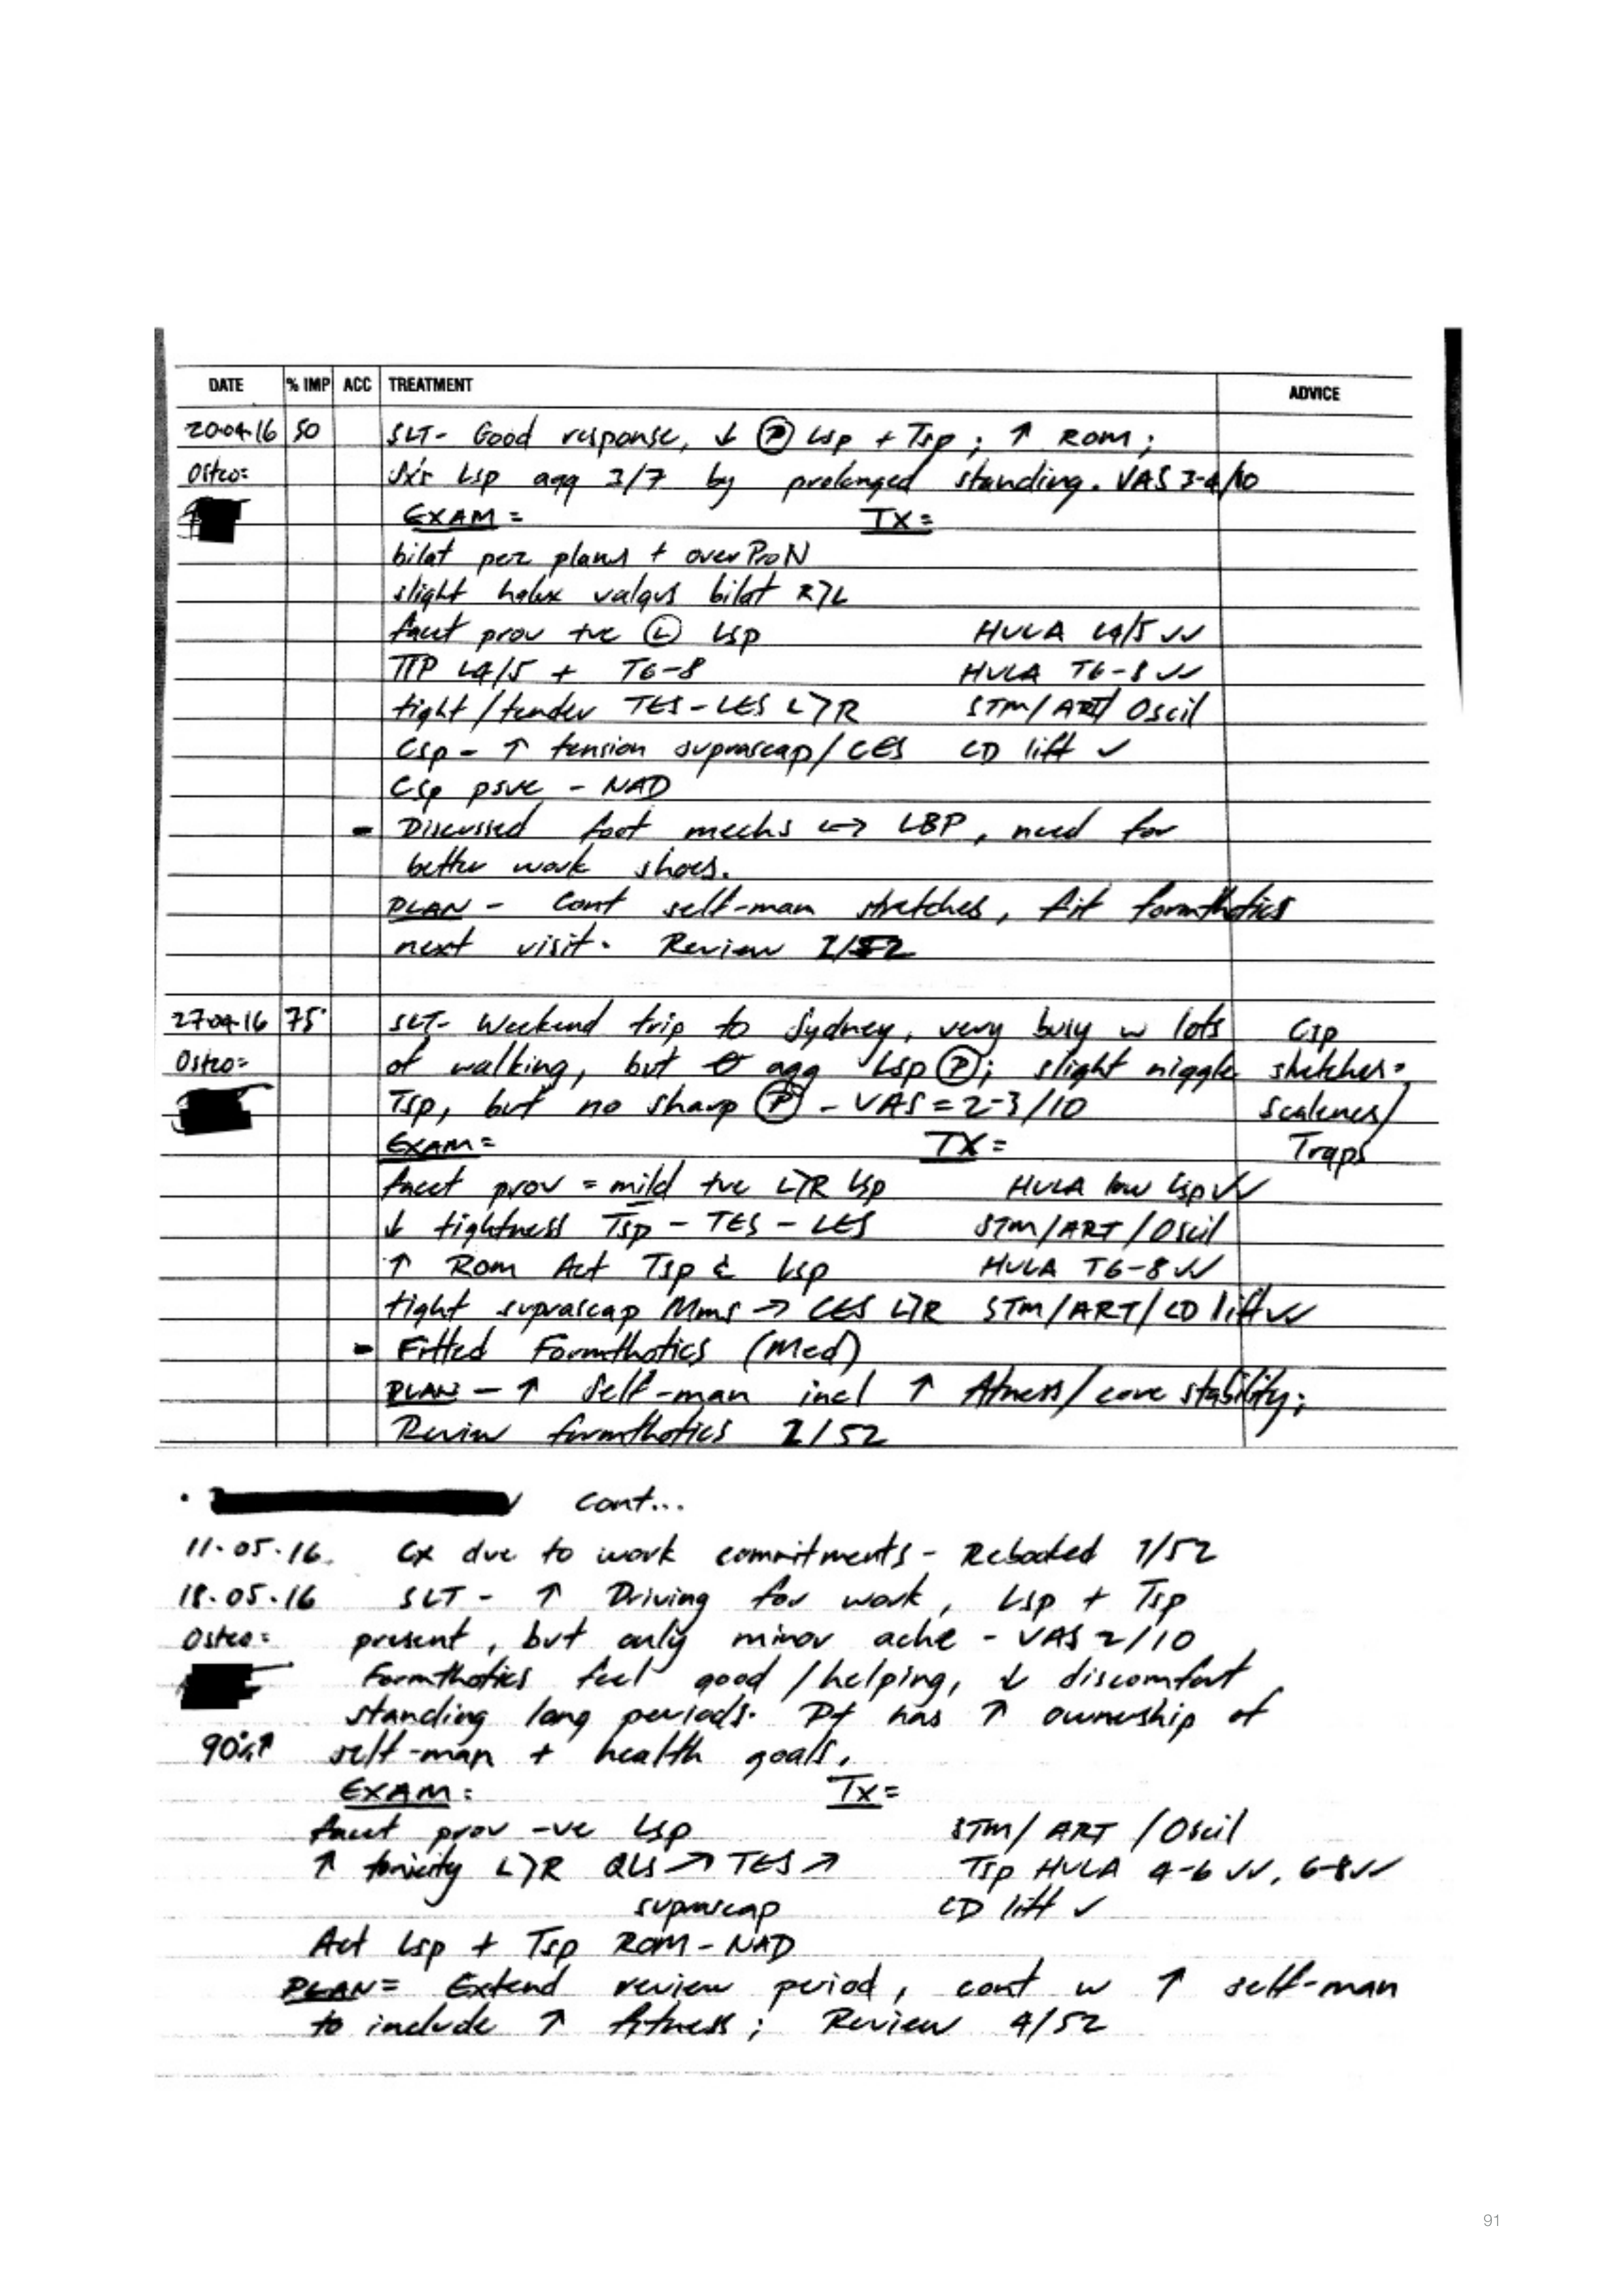 DATE % IMP ACC TREATMENT ADVICE
20·04·16 50 SLT- Good response, ↓ Ⓟ Lsp + Tsp ; ↑ ROM ;
Osteo= Sx's Lsp agg 3/7 by prolonged standing. VAS 3-4/10
EXAM = TX=
bilat pez planus + over ProN
slight halux valgus bilat R>L
facet prov +ve Ⓛ Lsp HVLA L4/5 ✓✓
TTP L4/5 + T6-8 HVLA T6-8 ✓✓
tight/tender TES-LES L>R STM/ART/Oscil
Csp - ↑ tension suprascap/CES CD lift ✓
Csp psve - NAD
- Discussed foot mechs <-> LBP, need for
better work shoes.
PLAN - Cont self-man stretches, fit formthotics
next visit. Review 1/52
27·04·16 75 SLT- Weekend trip to Sydney, very busy w lots Csp
Osteo= of walking, but agg Lsp Ⓟ; slight niggle stretches=
Tsp, but no sharp Ⓟ - VAS = 2-3/10 Scalenes/
EXAM= TX= Traps
facet prov = mild +ve L>R Lsp HVLA low Lsp ✓✓
↓ tightness Tsp - TES - LES STM/ART/Oscil
↑ Rom Act Tsp & Lsp HVLA T6-8 ✓✓
tight suprascap Mms -> CES L>R STM/ART/CD lift ✓✓
- Fitted Formthotics (Med)
PLAN - ↑ Self-man incl ↑ fitness/core stability;
Review formthotics 2/52
· cont...
11·05·16. Cx due to work commitments - Rebooked 1/52
18·05·16 SLT - ↑ Driving for work, Lsp + Tsp
Osteo= present, but only minor ache - VAS 2/10
Formthotics feel good/helping, ↓ discomfort
standing long periods. Pt has ↑ ownership of
90%↑ self-man + health goals.
EXAM= Tx=
facet prov -ve Lsp STM/ART/Oscil
↑ tonicity L>R QLS ↗ TES ↗ Tsp HVLA 4-6 ✓✓, 6-8 ✓✓
suprascap CD lift ✓
Act Lsp + Tsp ROM - NAD
PLAN= Extend review period, cont w ↑ self-man
to include ↑ fitness; Review 4/52
91